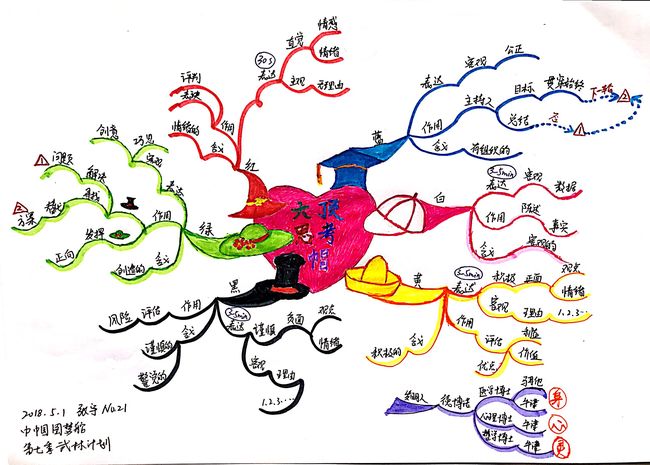 六顶
思考
帽
蓝
表达
客观
公正
作用
主持人
目标
贯穿始终
下一轮
2
总结
1
含义
有组织的
白
2-5min
表达
客观
数据
作用
陈述
真实
含义
客观的
黄
2-5min
表达
积极
正面
观点
情绪
客观
理由
1.2.3…
作用
评估
利益
价值
优点
含义
积极的
发明人
德博诺
医学博士
牛津
心理博士
牛津
哲学博士
牛津
身
心
黑
2-5min
表达
谨慎
负面
观点
情绪
客观
理由
1.2.3…
作用
评估
风险
含义
谨慎的
绿
表达
客观
巧思
创意
作用
解决
问题
1
寻找
方案
2
发挥
正向
含义
创造的
红
30s
表达
直觉
情感
情绪
主观
无理由
作用
表决
评判
含义
情绪的
2018.5.1 张宇 No.21
中中国国梦船
第七季武林计划